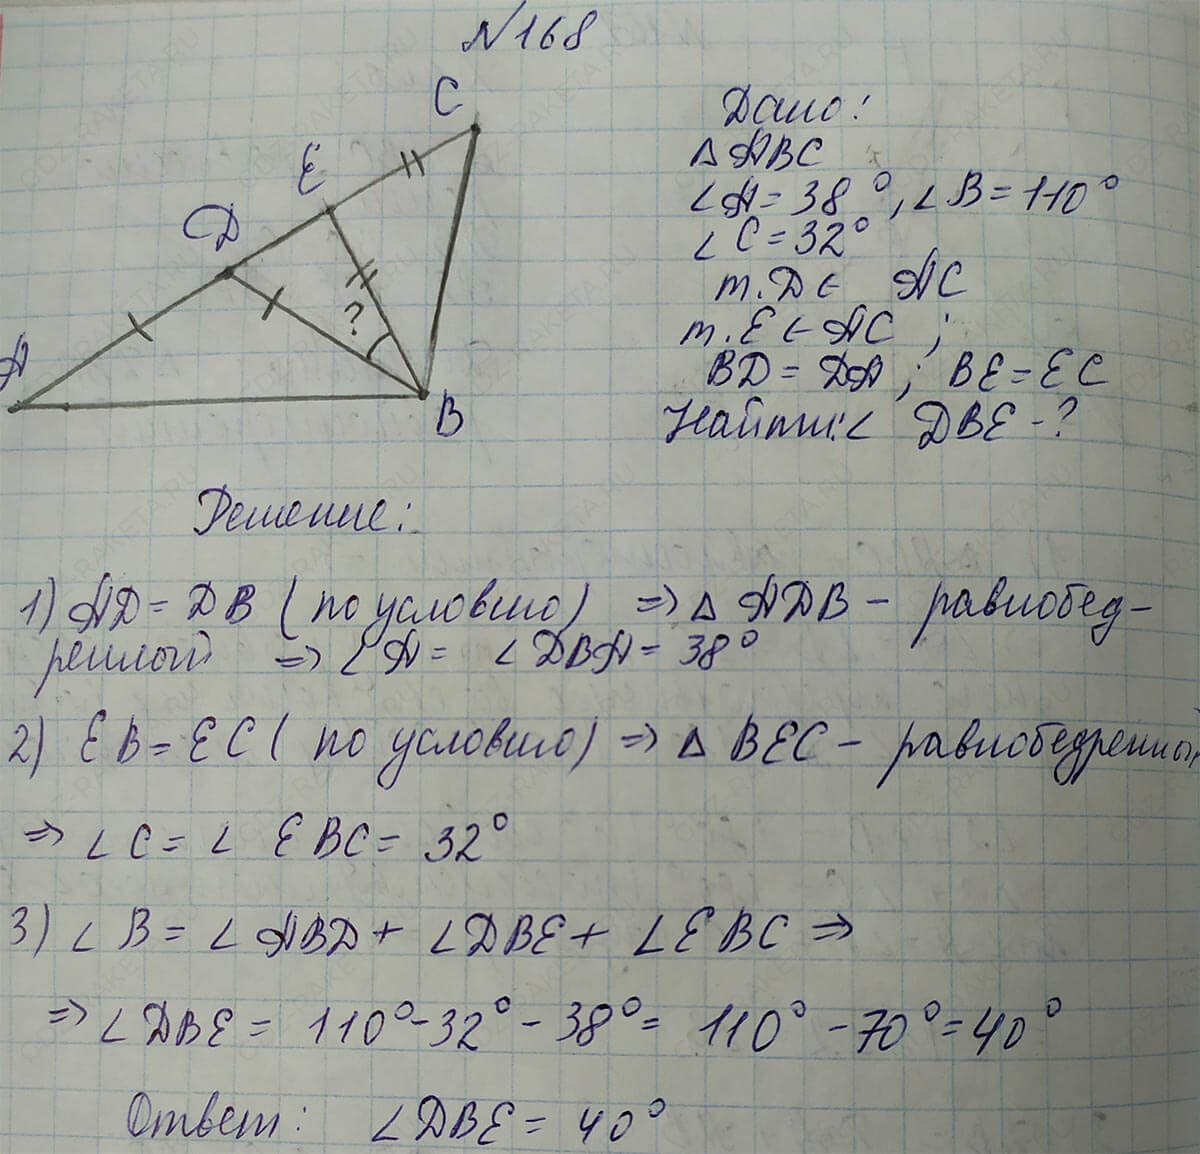 №168
C
E
D
A
?
B
Дано:
Δ ABC
∠A = 38°, ∠B = 110°
∠C = 32°
т. D ∈ AC
т. E ∈ AC ;
BD = DA ; BE = EC
Найти: ∠ DBE - ?
Решение:
1) AD = DB ( по условию) => Δ ADB – равнобед-
ренный => ∠A = ∠DBA = 38°
2) EB = EC ( по условию) => Δ BEC – равнобедренный
=> ∠C = ∠ EBC = 32°
3) ∠B = ∠ABD + ∠DBE + ∠EBC =>
=> ∠DBE = 110° - 32° - 38° = 110° - 70° = 40°
Ответ: ∠DBE = 40°